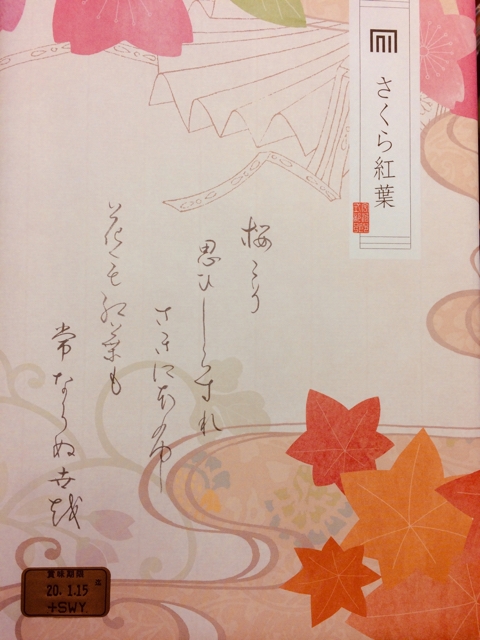 さくら紅葉
桜こそ
思ひしらすれ
さきにほふ
花も紅葉も
常ならぬ世を
賞味期限
20.1.15
+SWY